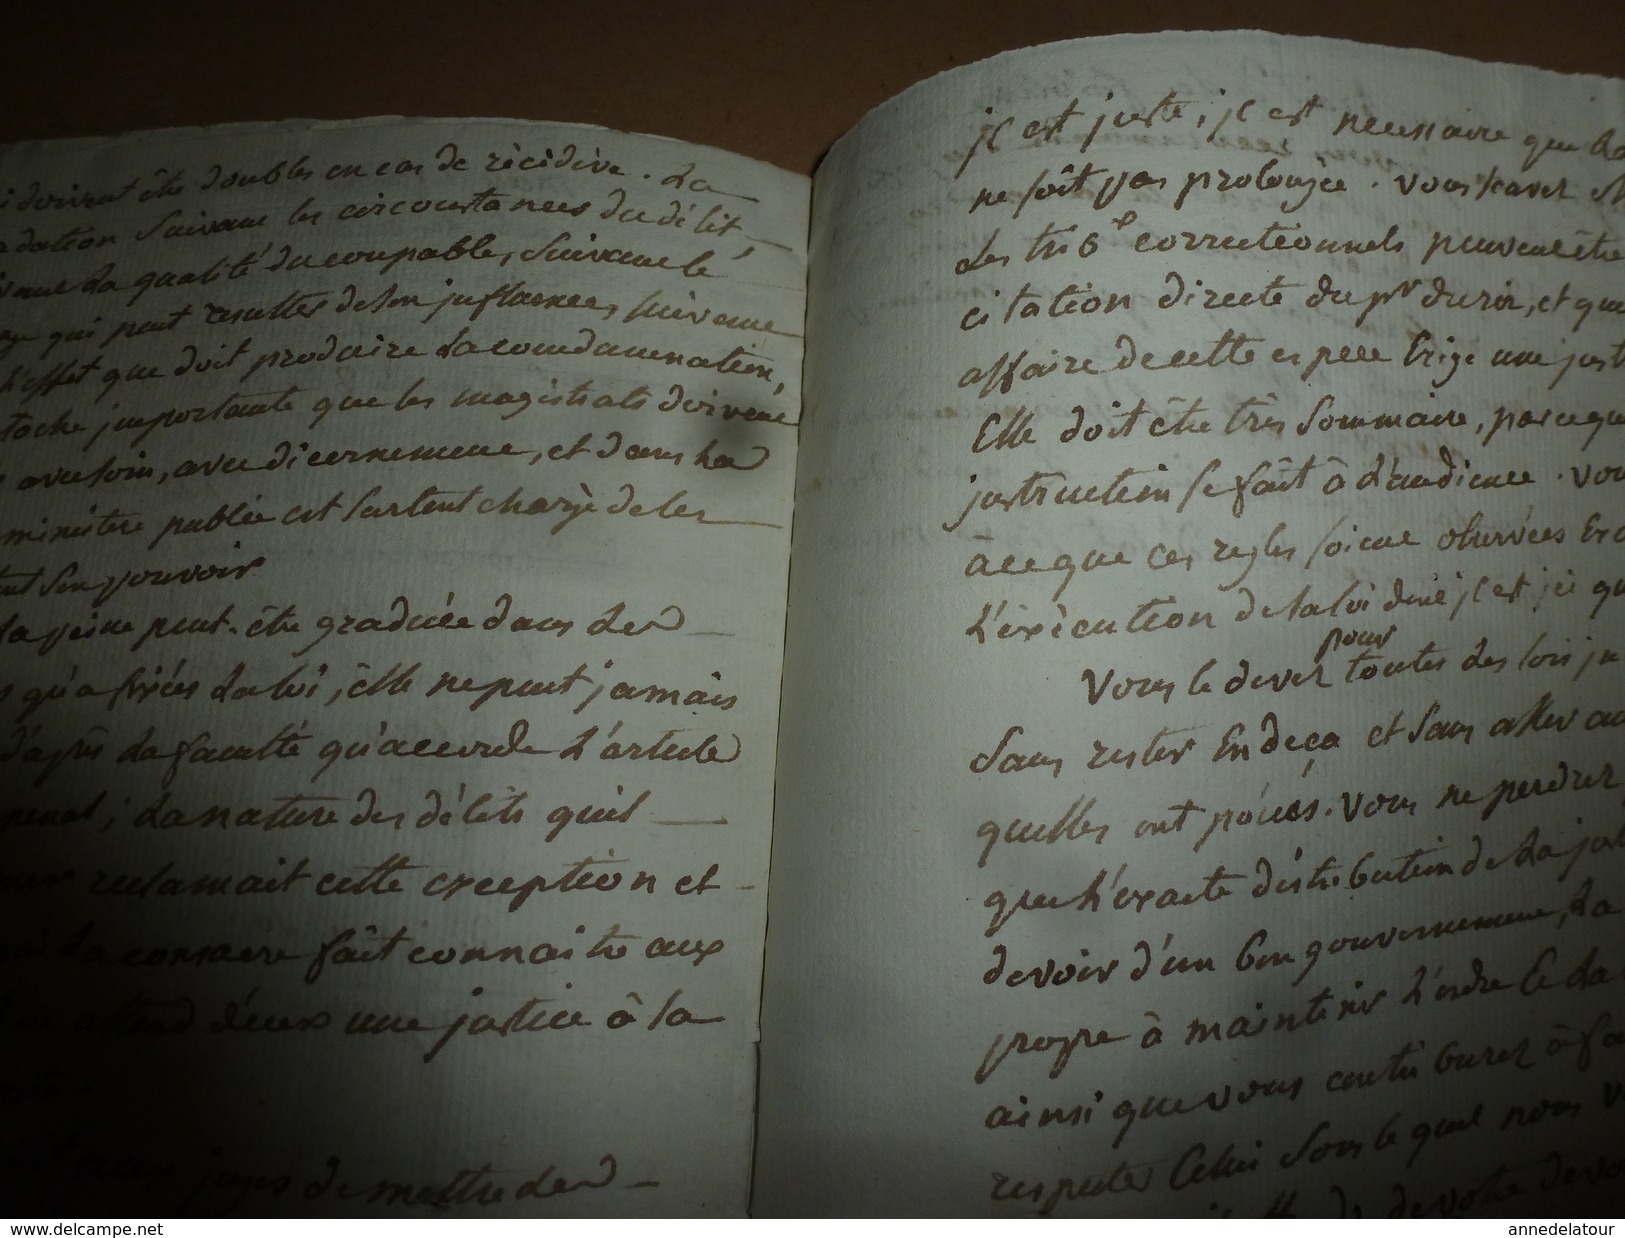 doivent être doubles en cas de rècidive. La
dation suivant les circonstances du délit,
la qualité du coupable, suivant le
qui peut resulter de son jnfluence, suivant
l'effet que doit produire la condamnation,
tache jmportante que les magistrats doivent
avec soin, avec dicernement, et dans la
ministere public est surtout chargé de les
son pouvoir
la peine peut-être graduée dans les
qu'a fixées la loi, êlle ne peut jamais
d'après la faculté qu'accorde l'article
penal; la nature des délits quil
reclamait cette exception et
la consacre fait connaitre aux
d'eux une justice à la
aux juges de mettre les
jl est juste, jl est necessaire que la
ne soît pas prolongée. vous savez
les trib correctionnels peuvent être
citation directe du pr du roi, et que
affaire de cette espece Exige une
Elle doit être très sommaire, parceque
jnstruction se faît à l'audience. vou
àceque ces regles soient observées
L'éxècution de la loi dont jl est jci qu
pour
Vous le devez toutes les lois
Sans rester En deça et sans aller au
quelles ont posés. Vous ne perdrez
que l'exacte distribution de la
devoir d'un bon gouvernement, la
propre à maintenir l'ordre
ainsi que vous contriburez à fa
respecter Celui sous le quel nous v
de votre devo
delcampe.net
annedelatour